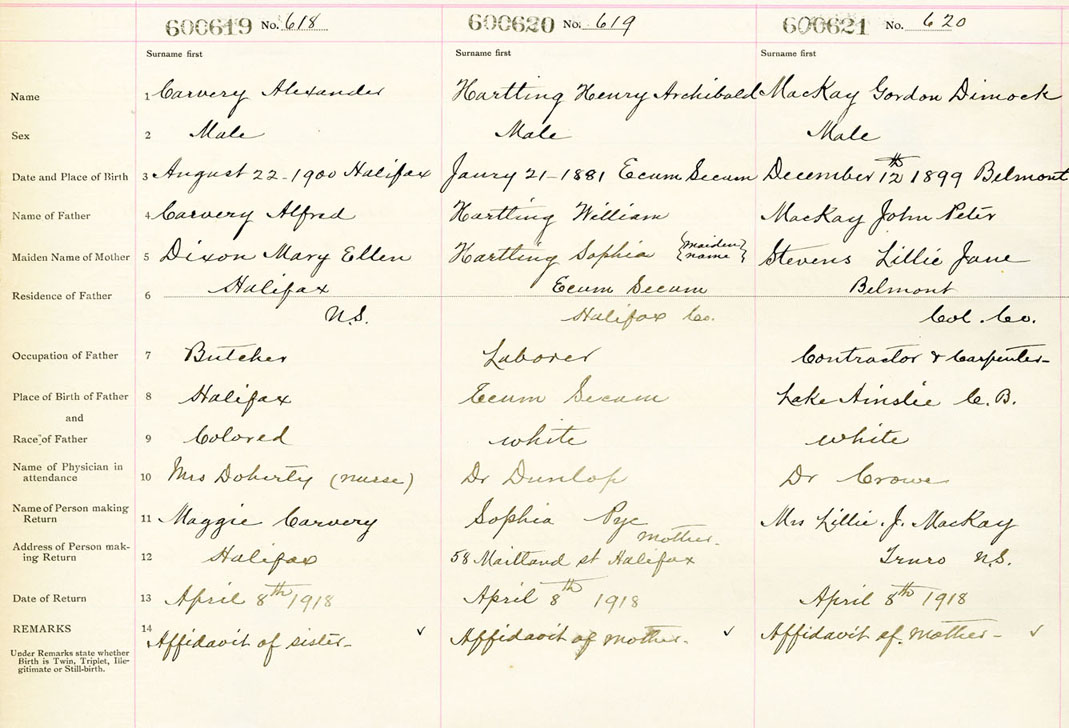 600619 No. 618 600620 No. 619 600621 No. 620
Surname first Surname first Surname first
Name 1 Carvery Alexander Hartling Henry Archibald MacKay Gordon Dimock
Sex 2 Male Male Male
Date and Place of Birth 3 August 22-1900 Halifax Janry 21-1881 Ecum Secum December 12th 1899 Belmont
Name of Father 4 Carvery Alfred Hartling William MacKay John Peter
Maiden Name of Mother 5 Dixon Mary Ellen Hartling Sophia {maiden name} Stevens Lillie Jane
Residence of Father 6 Halifax Ecum Secum Belmont
N.S. Halifax Co. Col. Co.
Occupation of Father 7 Butcher Laborer Contractor & Carpenter-
Place of Birth of Father 8 Halifax Ecum Secum Lake Ainslie C.B.
and
Race of Father 9 Colored white white
Name of Physician in
attendance 10 Mrs Doherty (nurse) Dr Dunlop Dr Crowe
Name of Person making
Return 11 Maggie Carvery Sophia Pye Mrs Lillie. J. MacKay
mother-
Address of Person mak-
ing Return 12 Halifax 58 Maitland st Halifax Truro N.S.
Date of Return 13 April 8th 1918 April 8th 1918 April 8th 1918
REMARKS 14 Affidavit of sister- ✓ Affidavit of mother- ✓ Affidavit of mother- ✓
Under Remarks state whether
Birth is Twin, Triplet, Ille-
gitimate or Still-birth.